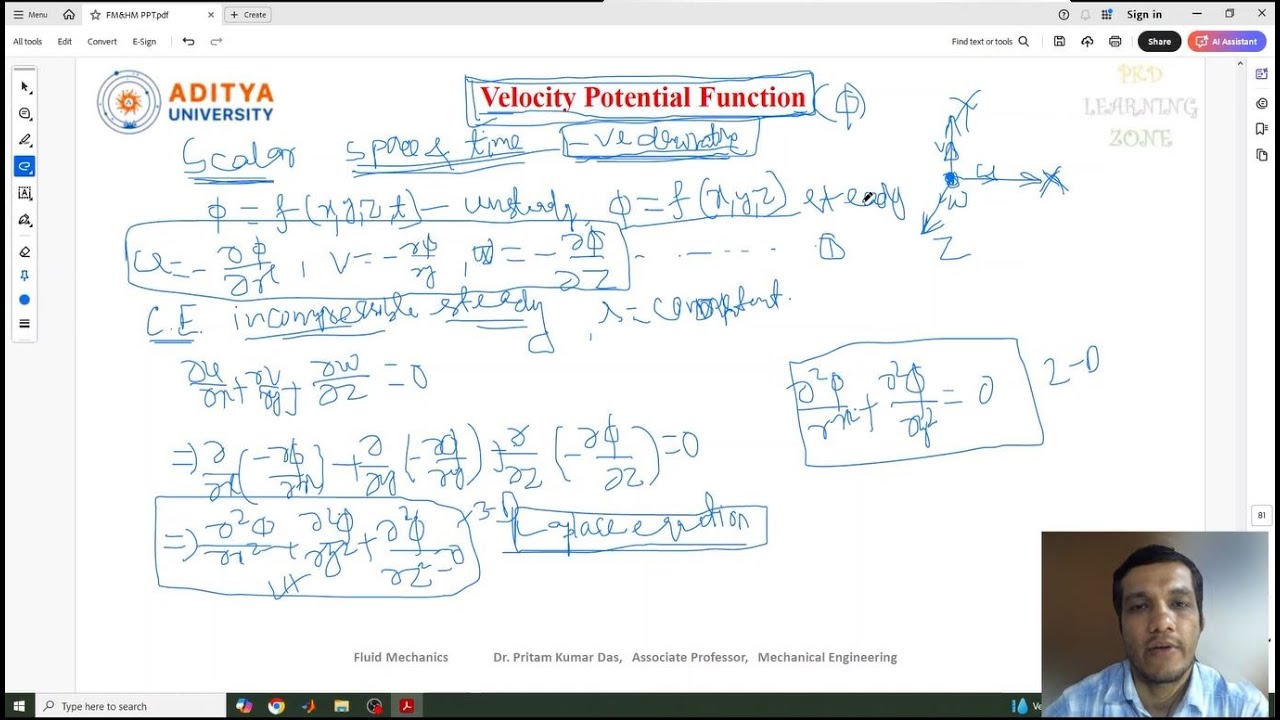 Menu
FM&HM PPT.pdf
Create
Sign in
All tools Edit Convert E-Sign
Find text or tools
Share
AI Assistant
ADITYA
UNIVERSITY
Velocity Potential Function (ϕ)
PRD
LEARNING
ZONE
Scalar space & time -ve derivative
ϕ = f(x,y,z,t) - unsteady, ϕ = f(x,y,z) steady
u = -∂ϕ/∂x, v = -∂ϕ/∂y, w = -∂ϕ/∂z - - - - - - ①
Y
v
u X
w
Z
C.E. incompressible steady, = constant.
∂u/∂x + ∂v/∂y + ∂w/∂z = 0
∂²ϕ/∂x² + ∂²ϕ/∂y² = 0 2-D
⇒ ∂/∂x(-∂ϕ/∂x) + ∂/∂y(-∂ϕ/∂y) + ∂/∂z(-∂ϕ/∂z) = 0
⇒ ∂²ϕ/∂x² + ∂²ϕ/∂y² + ∂²ϕ/∂z² = 0 3-D Laplace equation
81
Fluid Mechanics Dr. Pritam Kumar Das, Associate Professor, Mechanical Engineering
Type here to search